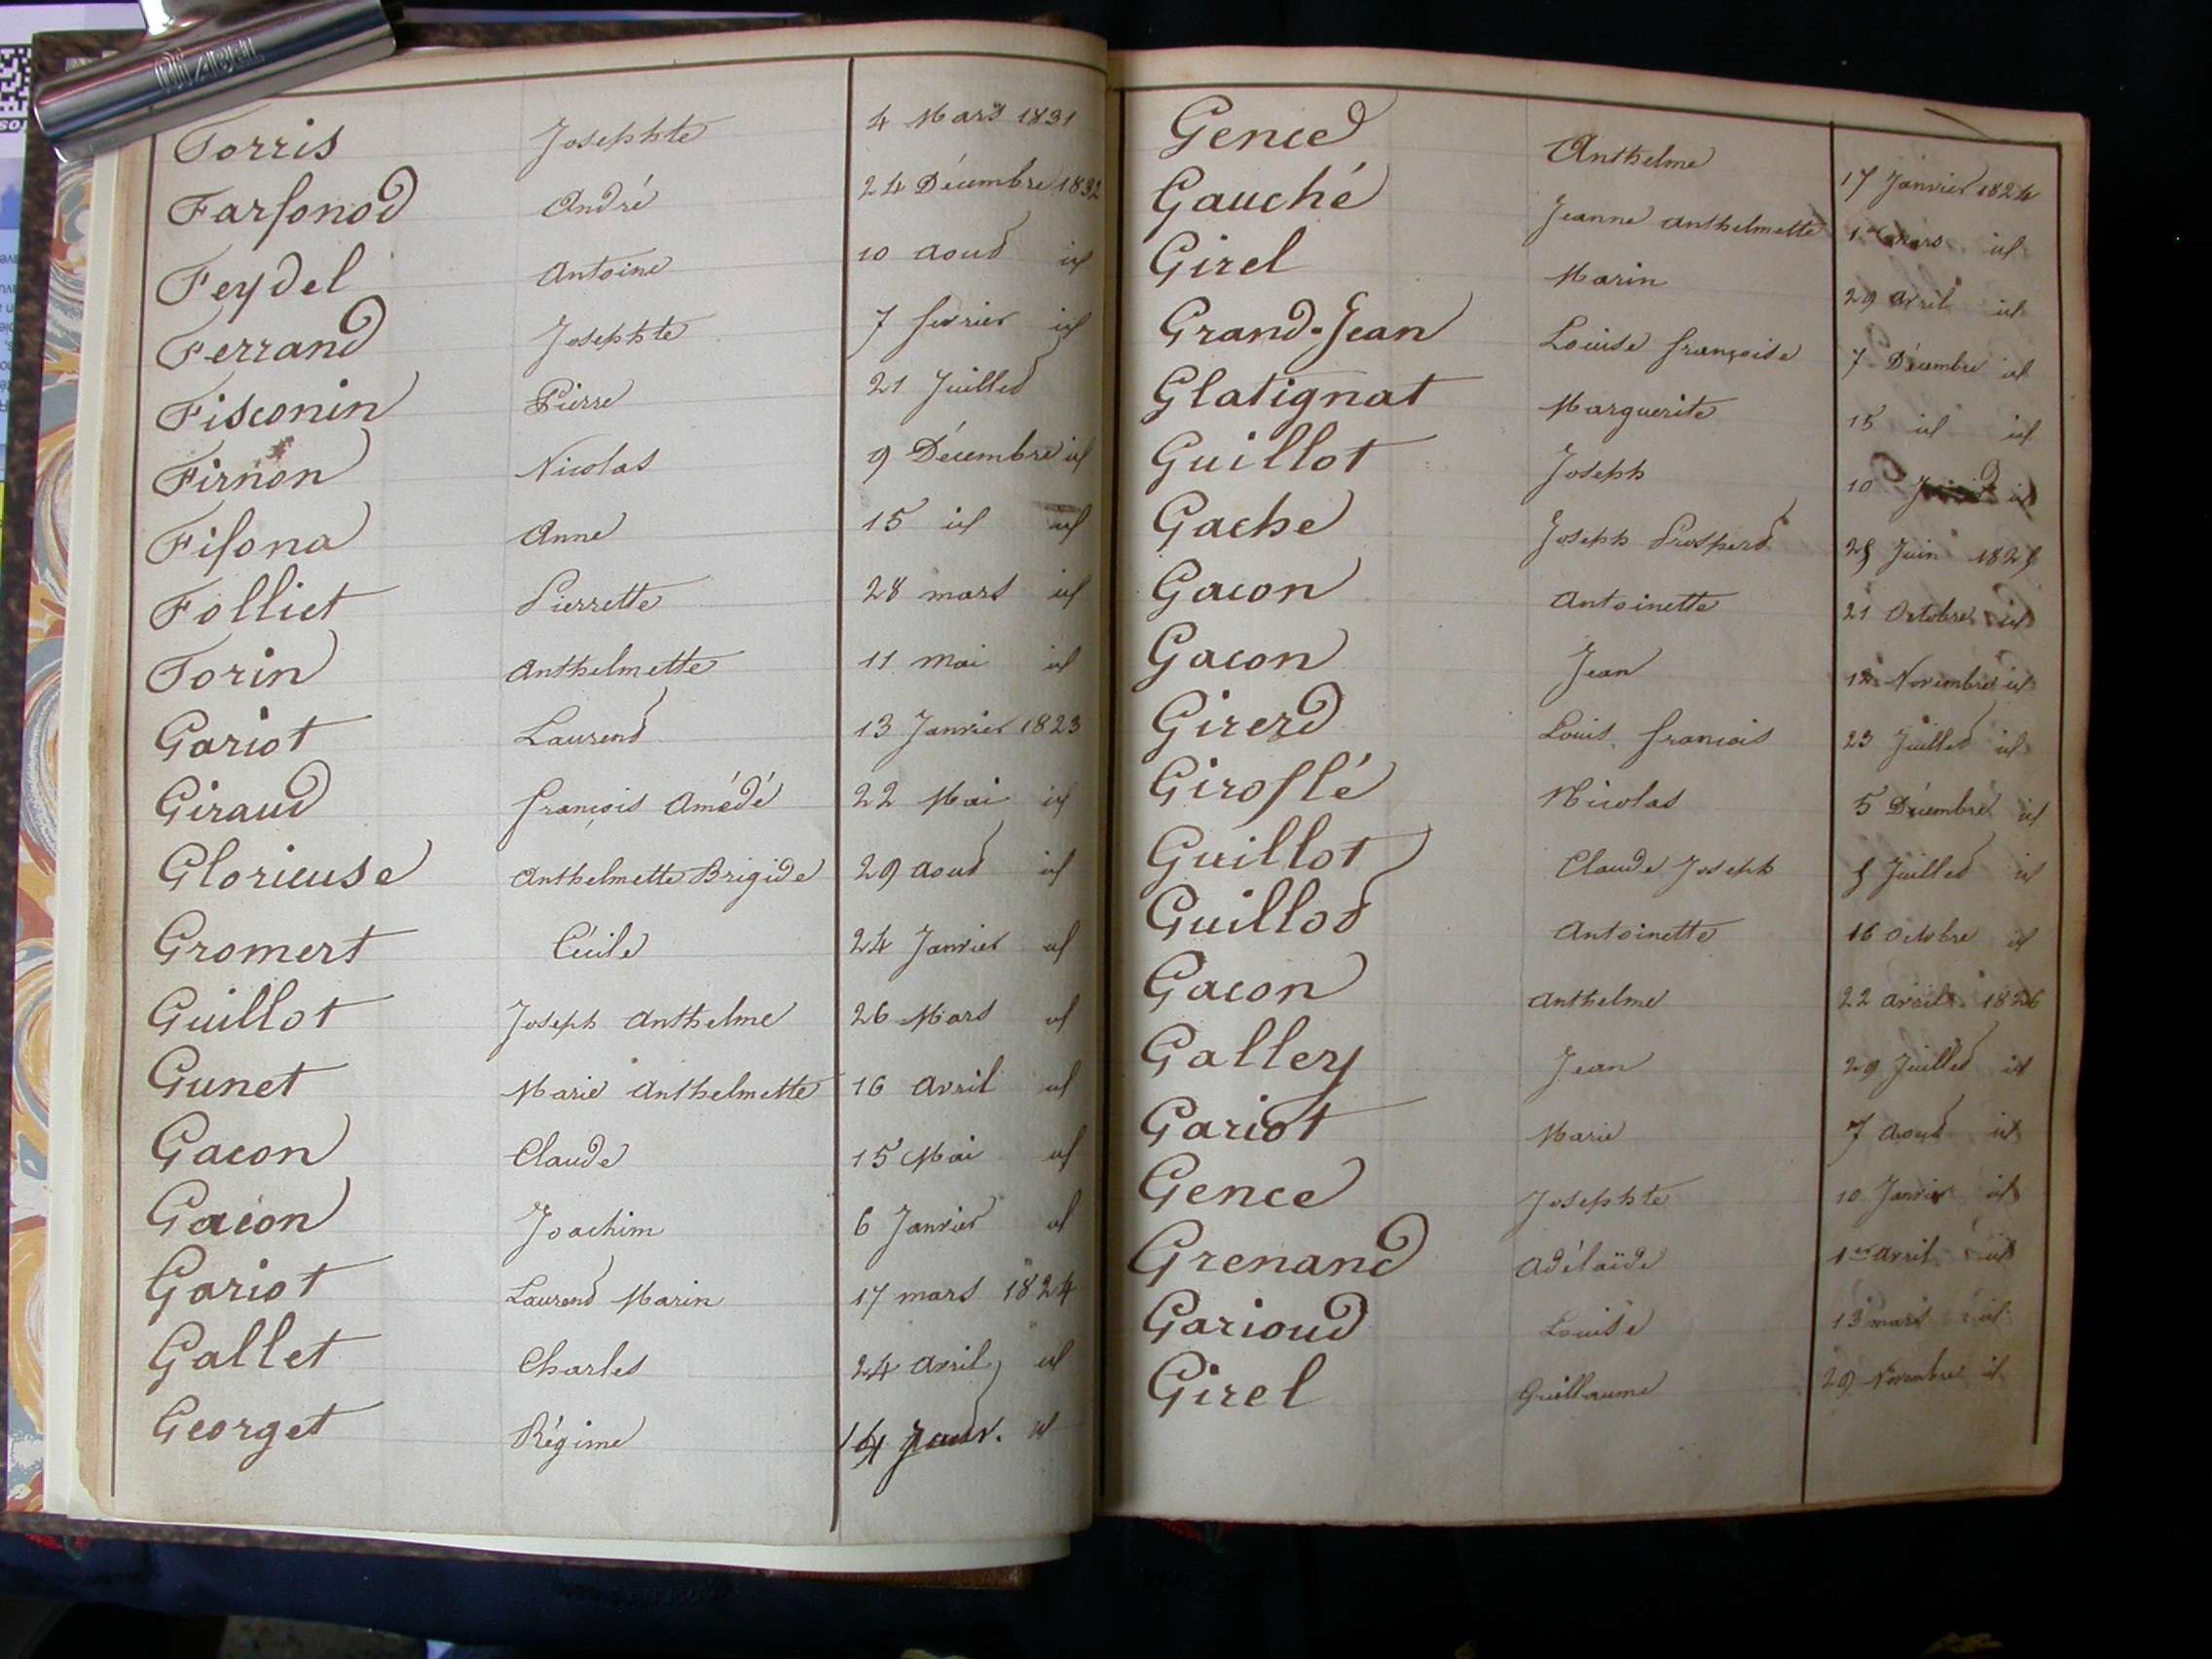 Forris Josephte 4 Mars 1831
Farsonod André 24 Décembre 1832
Feydel Antoine 10 aoud id
Ferrand Josephte 7 fevrier id
Fisconin Pierre 21 Juilled
Firnon Nicolas 9 Décembre id
Fisona Anne 15 id id
Folliet Pierrette 28 mars id
Forin Anthelmette 11 mai id
Gariot Laurend 13 Janvier 1823
Giraud françois Amédé 22 Mai id
Glorieuse Anthelmette Brigide 29 aoud id
Gromert Cécile 24 Janvier id
Guillot Joseph Anthelme 26 Mars id
Gunet Marie Anthelmette 16 avril id
Gacon Claude 15 Mai id
Gacon Joachim 6 Janvier id
Gariot Laurend Marin 17 mars 1824
Gallet Charles 24 avril id
Georget Régime 14 id
Gence Anthelme 17 Janvier 1824
Gauché Jeanne Anthelmette 1er mars id
Girel Marin 29 avril id
Grand-Jean Louise françoise 7 Décembre id
Glatignat Marguerite 15 id id
Guillot Joseph 10 id
Gache Joseph Prosperd 25 Juin 1825
Gacon Antoinette 21 Octobre id
Gacon Jean Novembre id
Girerd Louis francois 23 Juilled id
Giroflé Nicolas 5 Décembre id
Guillot Claude Joseph 5 Juilled id
Guillod Antoinette 16 Octobre id
Gacon Anthelme 22 avril 1826
Gallery Jean 29 Juilled id
Gariot Marie 7 aoud id
Gence Josephte 10 Janvier id
Grenand Adélaïde 1er avril id
Garioud Louise 13 mars id
Girel Guillaume 29 Novembre id